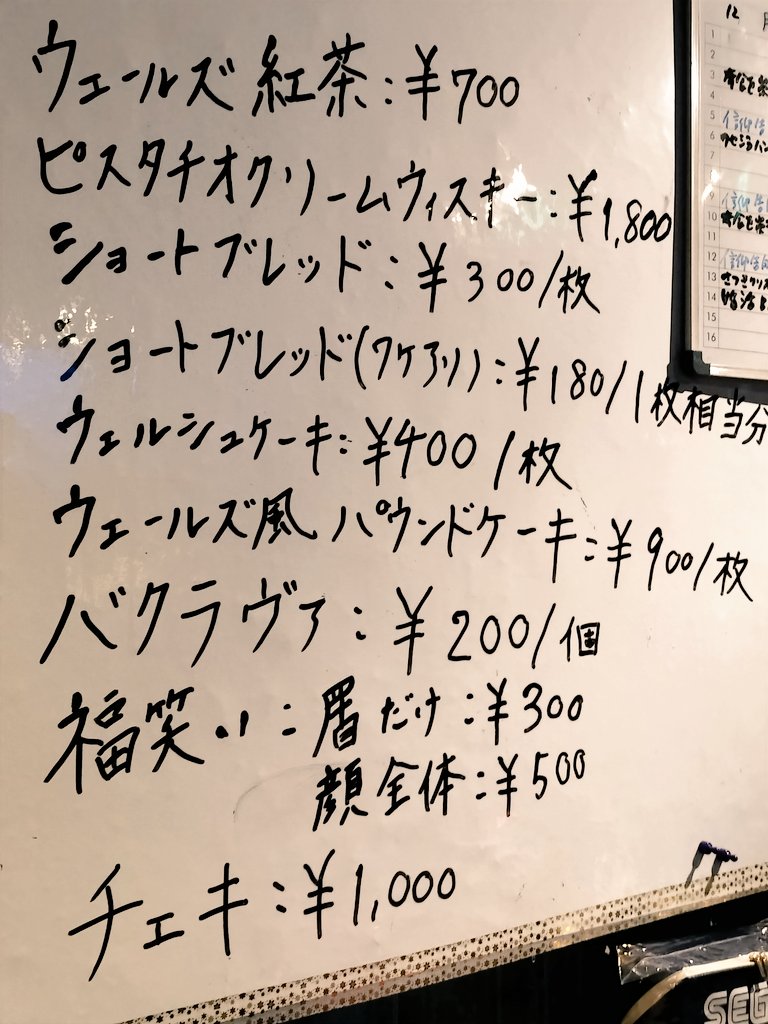 ウェールズ 紅茶:¥700
ピスタチオクリームウィスキー:¥1,800
ショートブレッド:¥300/枚
ショートブレッド(ワケアリ):¥180/1枚相当分
ウェルシュケーキ:¥400/枚
ウェールズ風 パウンドケーキ:¥900/枚
バクラヴァ:¥200/個
福笑い:眉だけ:¥300
顔全体:¥500
チェキ:¥1,000
12
1
2
3
4
5
6
7
9
10
11
12
13
14
15
16
SEG